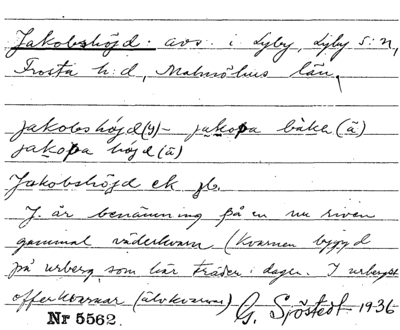 Jakobshöjd: avs. i Lyby, Lyby s:n,
Frosta h:d, Malmöhus län.
jakobshöjd(y) – jakopa bäke (ä)
jakopa höjd (ä)
Jakobshöjd ek. bl.
J. är benämning på en nu riven
gammal väderkvarn (Kvarnen byggd
på urberg som här träder i dagen. I urberget
offerkvarnar (älvkvarnar) G. Sjöstedt 1936
Nr 5562.